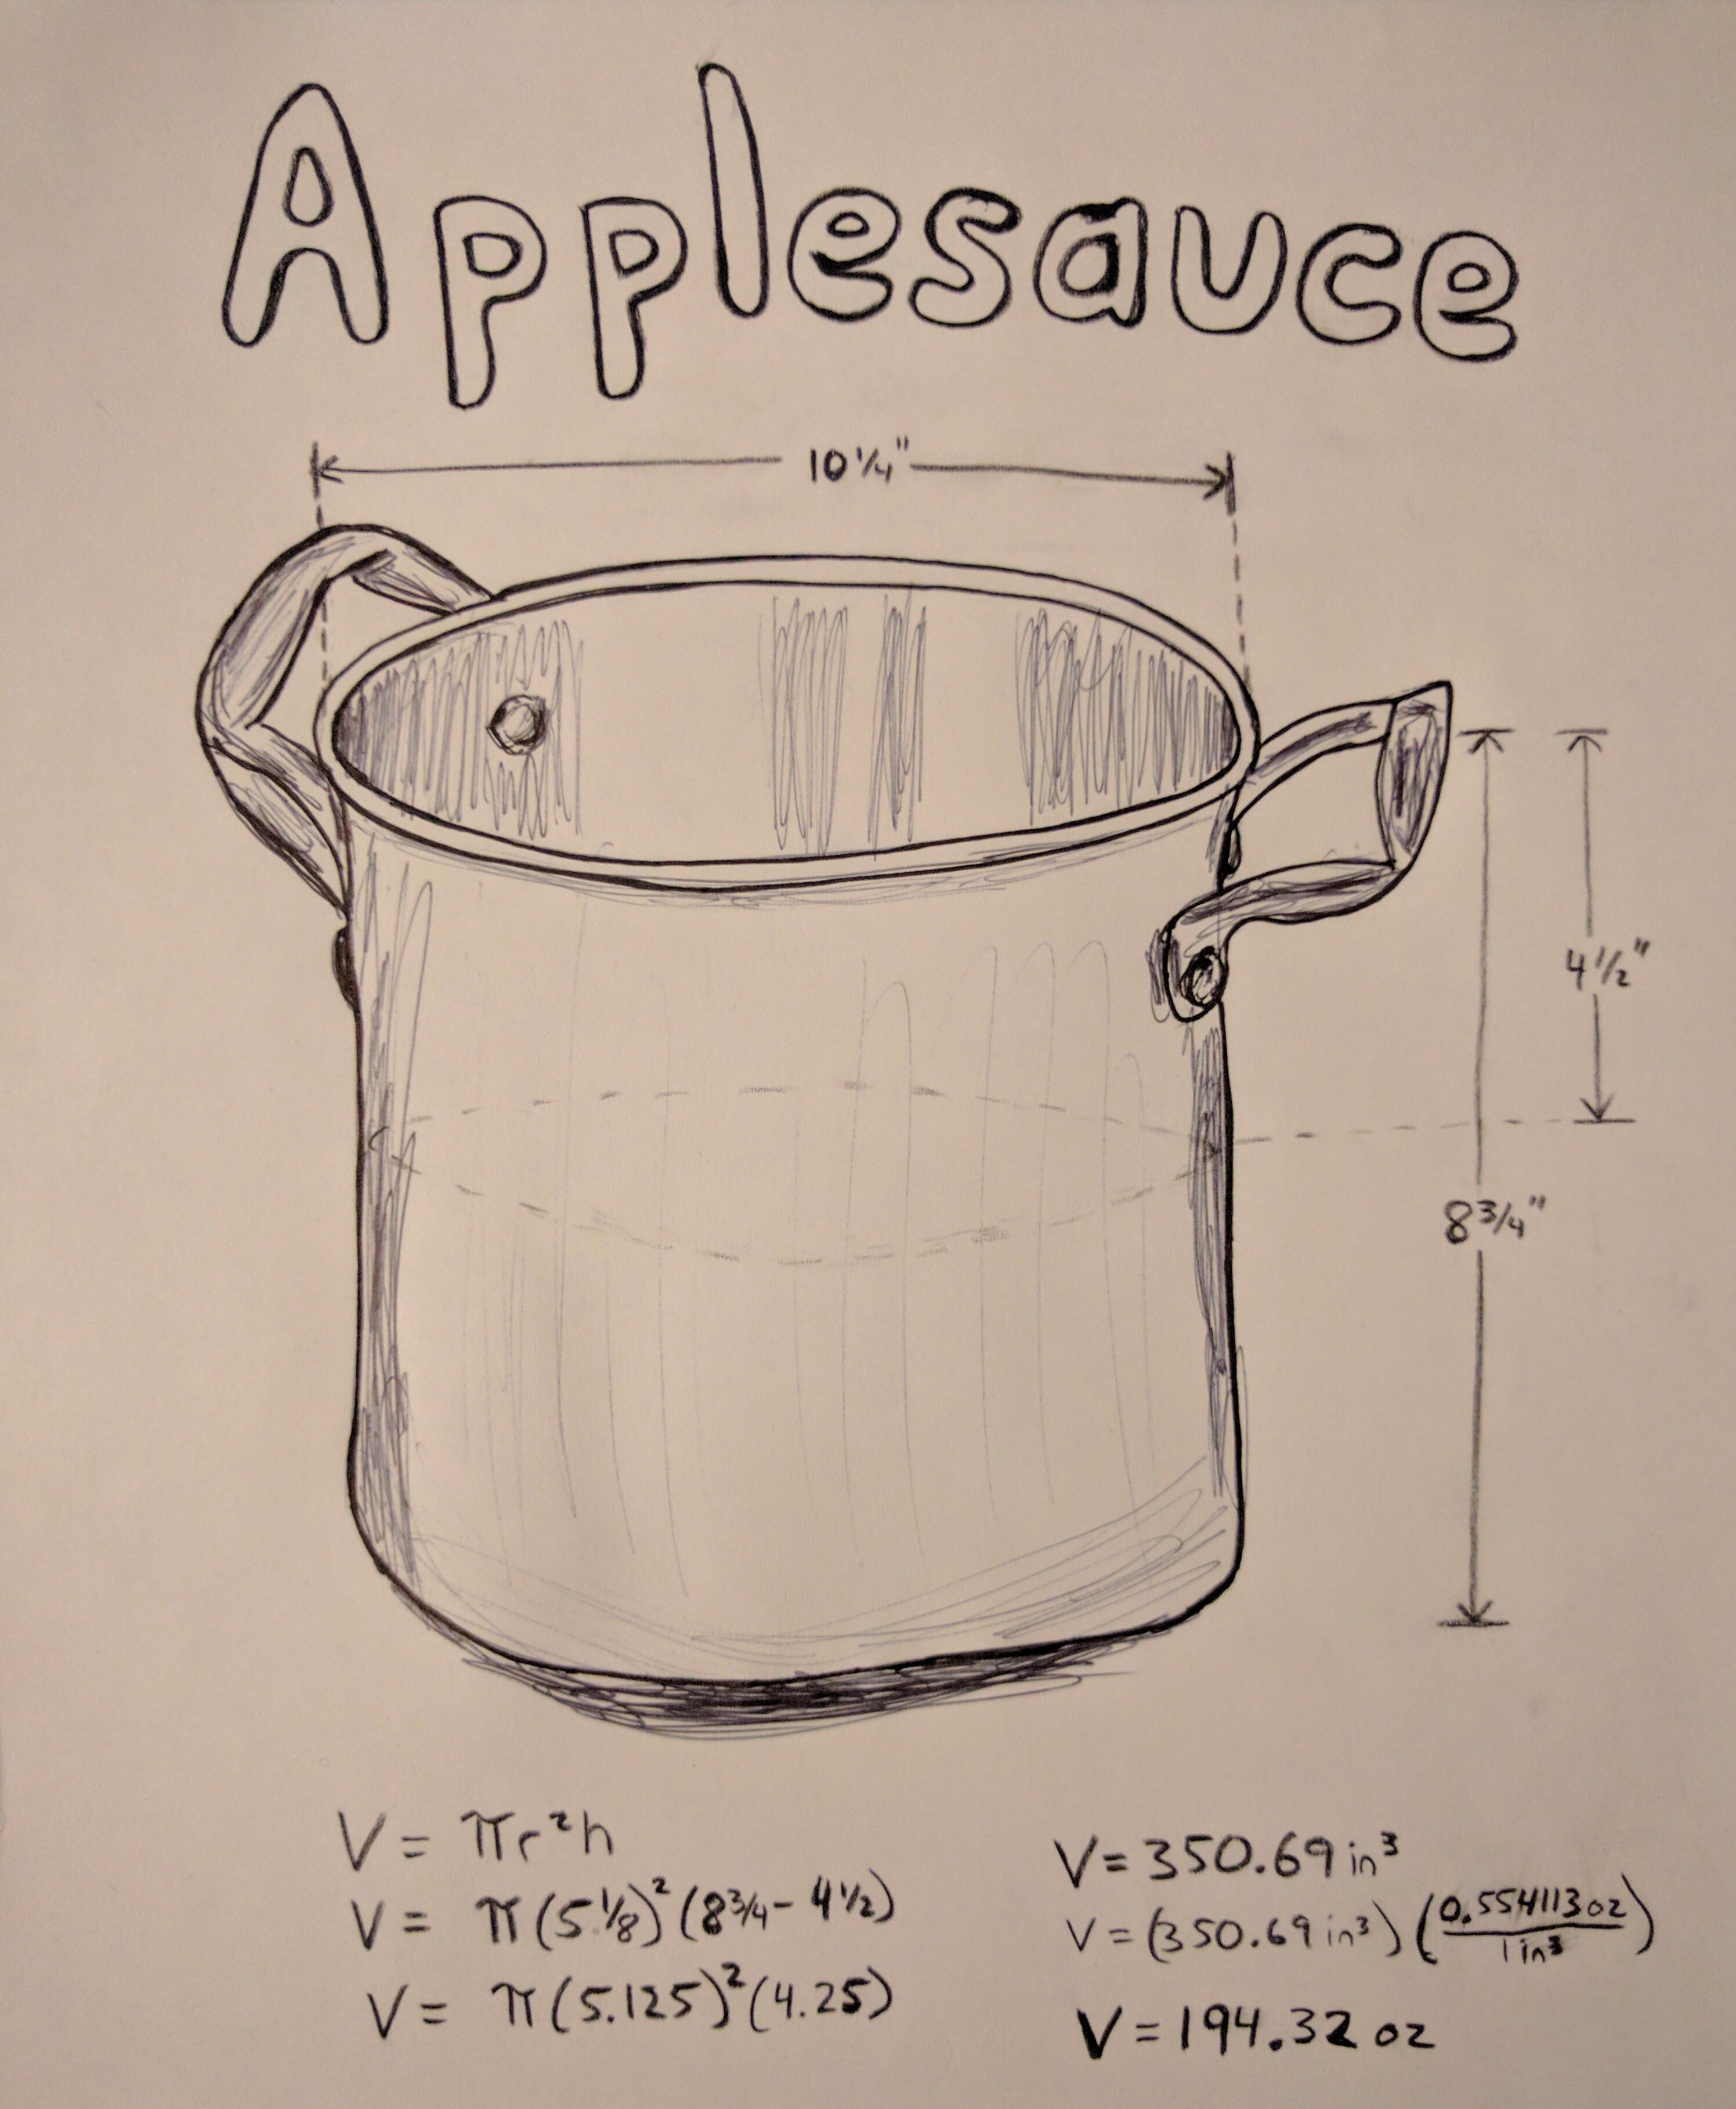 Applesauce
10 1/4"
4 1/2"
8 3/4"
V = πr²h
V = π(5 1/8)²(8 3/4 - 4 1/2)
V = π(5.125)²(4.25)
V = 350.69 in³
V = (350.69 in³)(0.554113 oz / 1 in³)
V = 194.32 oz